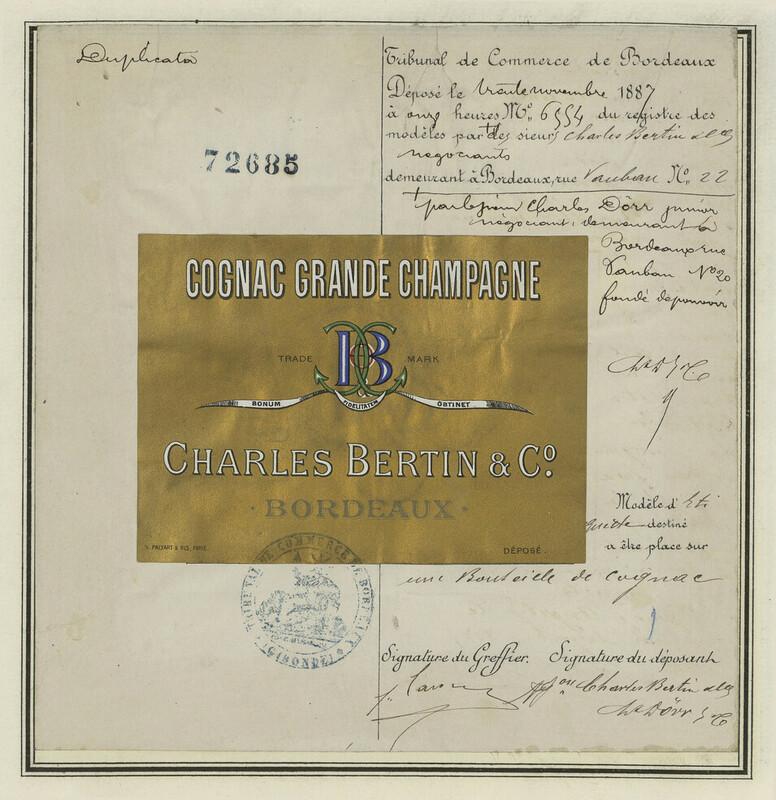 Duplicata
72685
Tribunal de Commerce de Bordeaux
Déposé le trente novembre 1887
à onze heures No. 6554 du registre des
modèles par les sieurs Charles Bertin & Co
négociants
demeurant à Bordeaux, rue Vauban No. 22
par le sieur Charles Dörr junior
négociant, demeurant à
Bordeaux rue
Vauban No 20
fondé de pouvoir
COGNAC GRANDE CHAMPAGNE
TRADE DCB MARK
BONUM FIDELITATEM OBTINET
CHARLES BERTIN & Co.
· BORDEAUX ·
PARIS. DÉPOSÉ.
Modèle d'éti
quette destiné
a être place sur
une Bouteille de cognac
TRIBUNAL DE COMMERCE DE BORDEAUX
(GIRONDE)
Signature du Greffier. Signature du déposant
Charles Bertin & Co
Ch Dörr